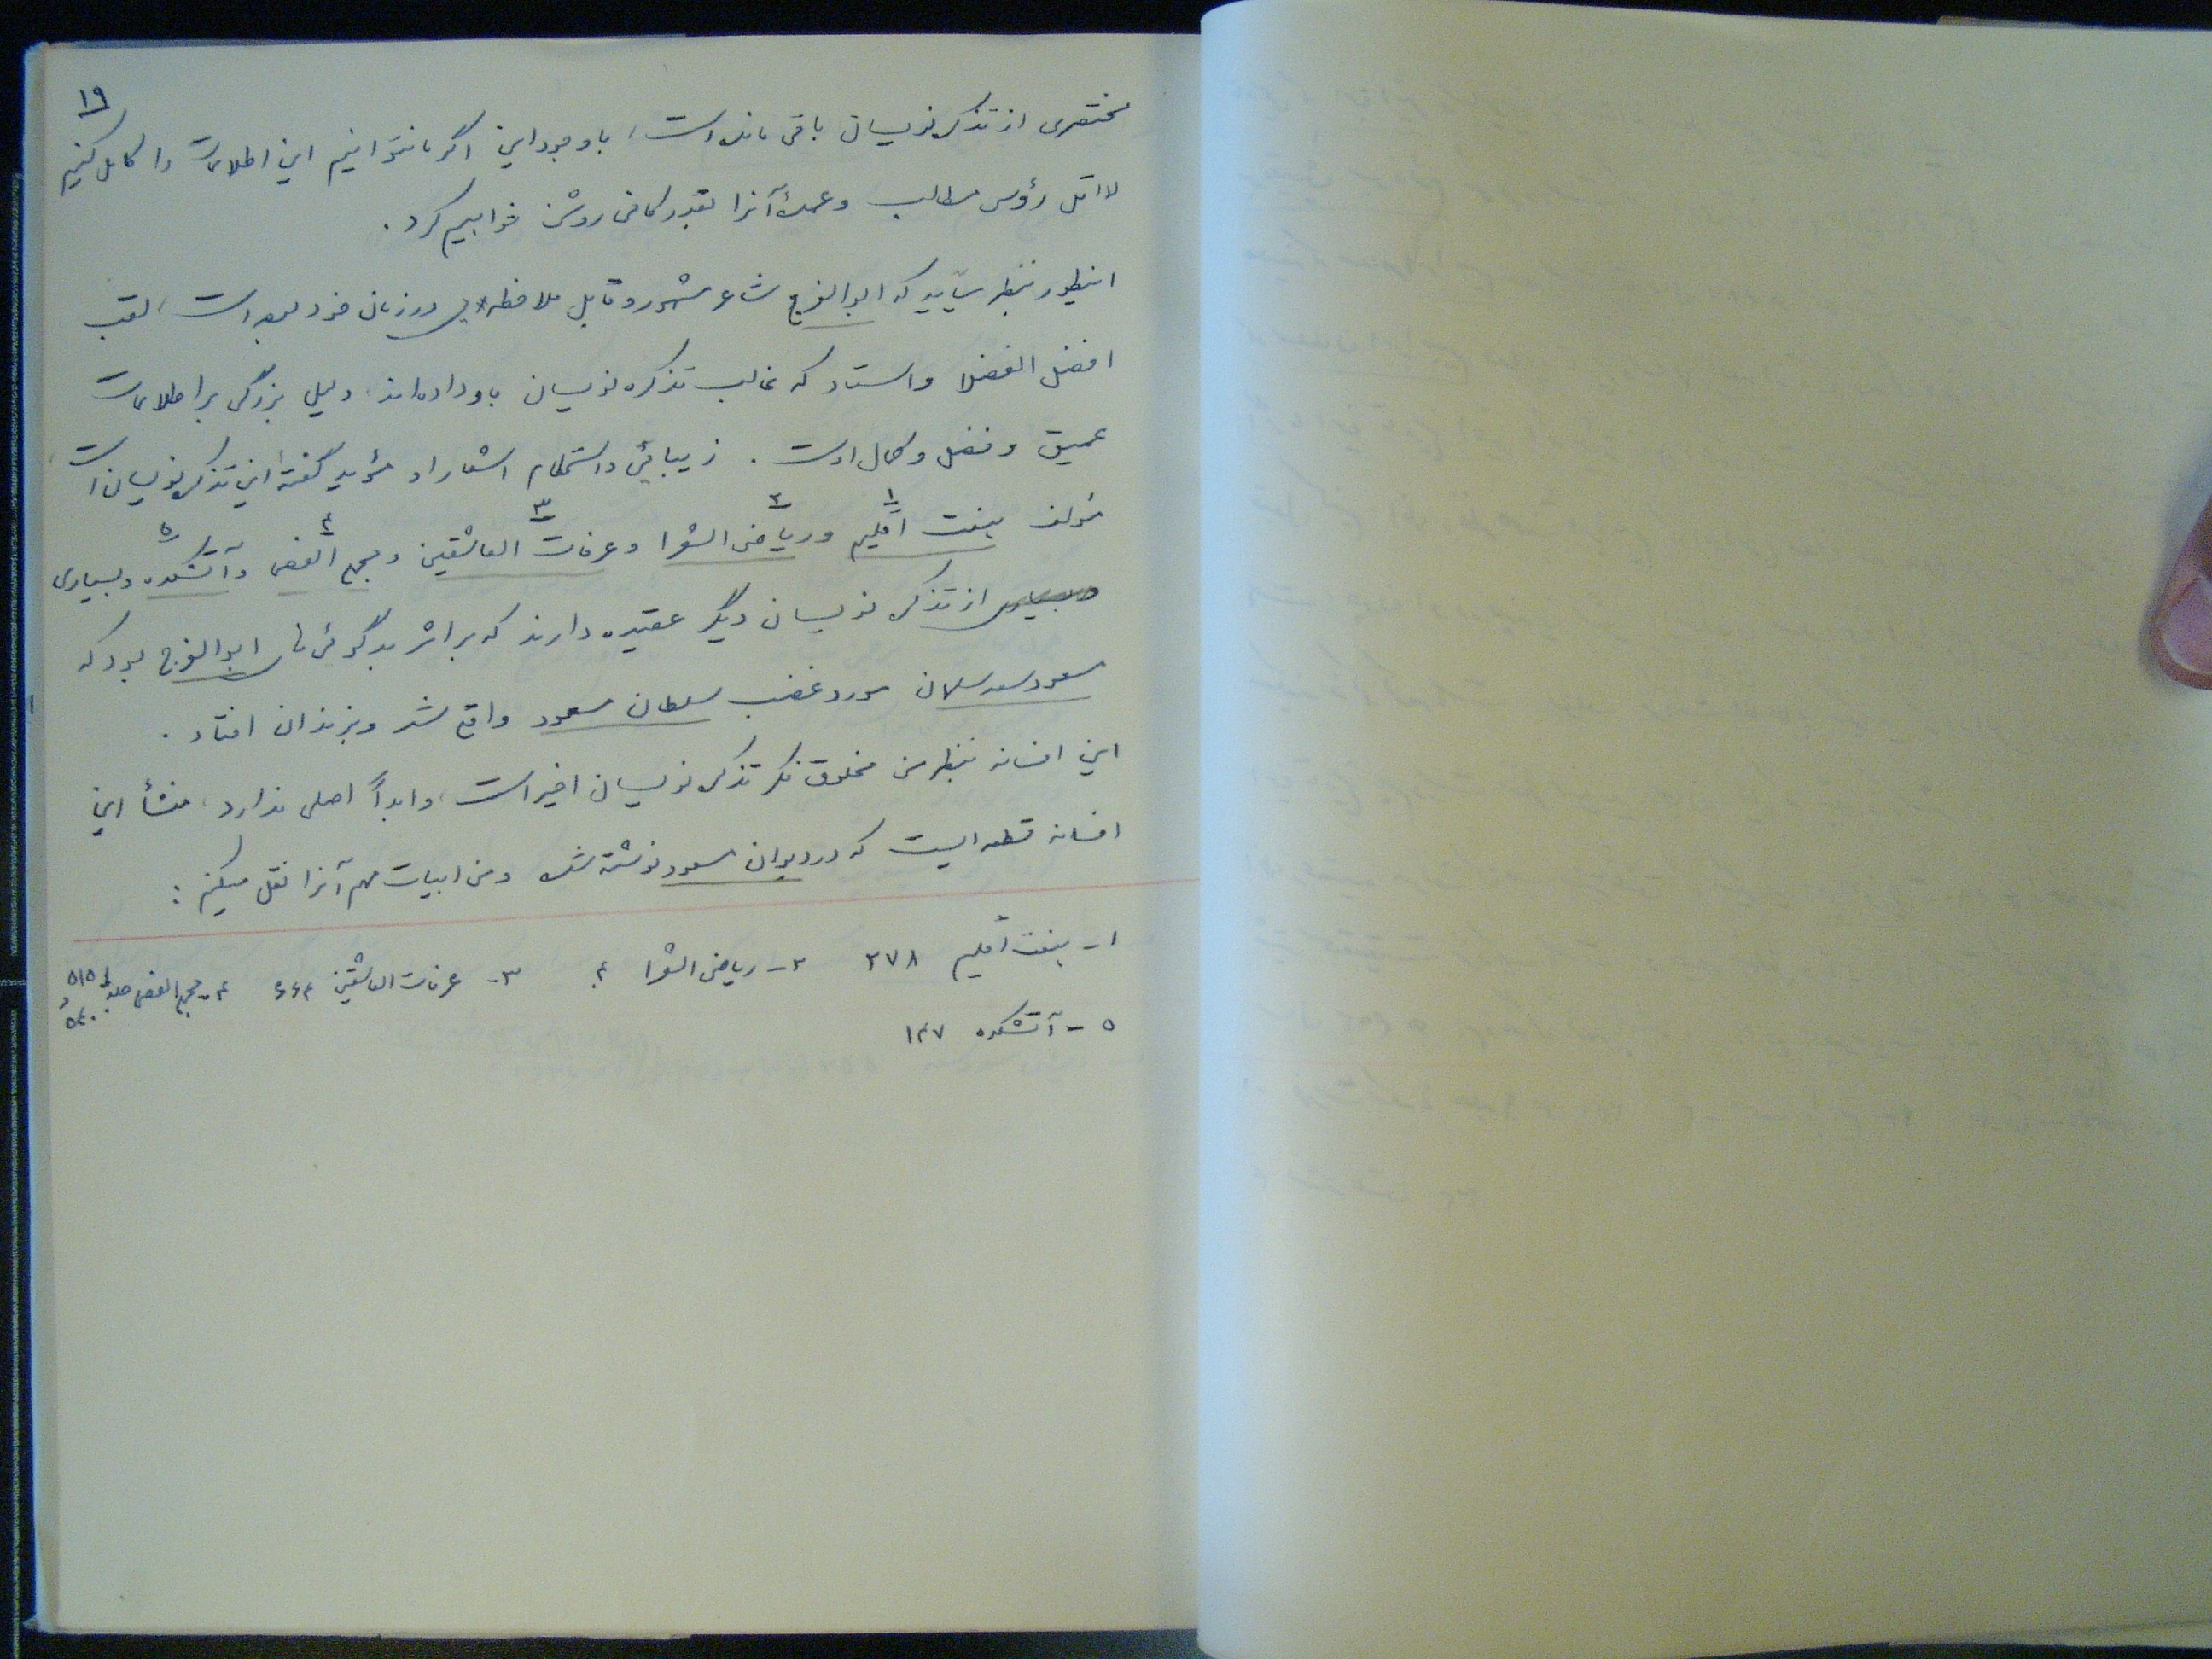 ۱۹
مختصری از تذکره نویسان باقی مانده است، با وجود این اگر ما نتوانیم این اطلاعات را کامل کنیم
لااقل رؤس مطالب و عمدهٔ آنرا بقدر کافی روشن خواهیم کرد.
اینطور بنظر میآید که ابوالفرج شاعر مشهور و قابل ملاحظه یی در زمان خود بوده است، لقب
افضل الفضلا و استاد که غالب تذکره نویسان باو داده اند، دلیل بزرگی بر اطلاعات
عمیق و فضل و کمال اوست. زیبائی و استحکام اشعار او مؤید گفتهٔ این تذکره نویسان است
مؤلف هفت اقلیم ۱ و ریاض الشعرا ۲ و عرفات العاشقین ۳ و مجمع الفصحا ۴ و آتشکده ۵ و بسیاری
از تذکره نویسان دیگر عقیده دارند که بر اثر بدگوئی های ابوالفرج بود که
مسعود سعد سلمان مورد غضب سلطان مسعود واقع شد و بزندان افتاد.
این افسانه بنظر من مخلوق فکر تذکره نویسان اخیر است، و ابداً اصلی ندارد، منشأ این
افسانه قطعه ایست که در دیوان مسعود نوشته شده و من ابیات مهم آنرا نقل میکنم:
۱- هفت اقلیم ۲۷۸ ۲- ریاض الشعرا ۴ ۳- عرفات العاشقین ۶۶۴ ۴- مجمع الفصحا جلد ۱ ۵۱۵ و ۵۴۰
۵- آتشکده ۱۴۷